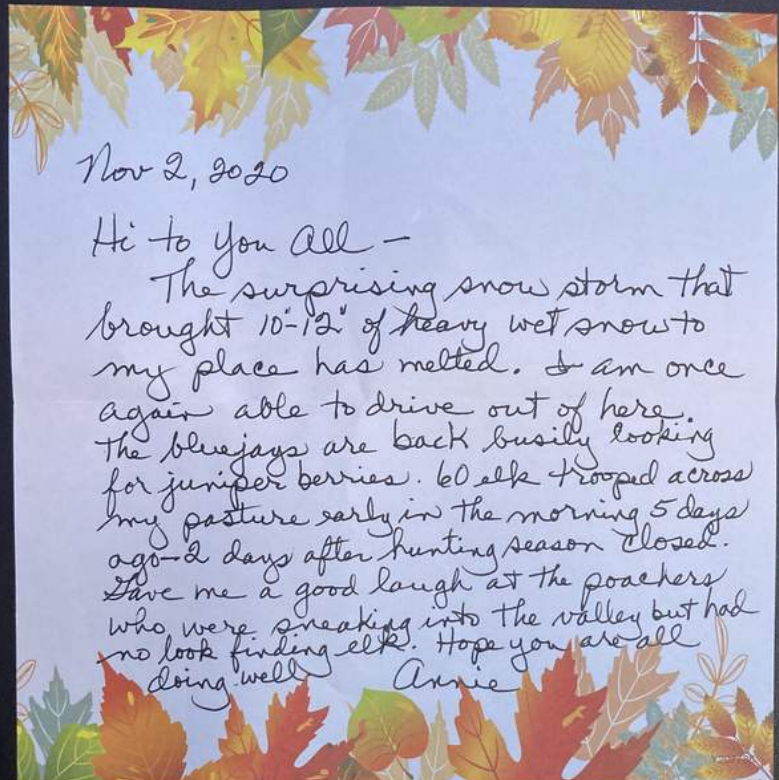 Nov 2, 2020
Hi to You All –
The surprising snow storm that
brought 10"-12" of heavy wet snow to
my place has melted. I am once
again able to drive out of here.
The bluejays are back busily looking
for juniper berries. 60 elk trooped across
my pasture early in the morning 5 days
ago–2 days after hunting season closed.
Gave me a good laugh at the poachers
who were sneaking into the valley but had
no look finding elk. Hope you are all
doing well Annie